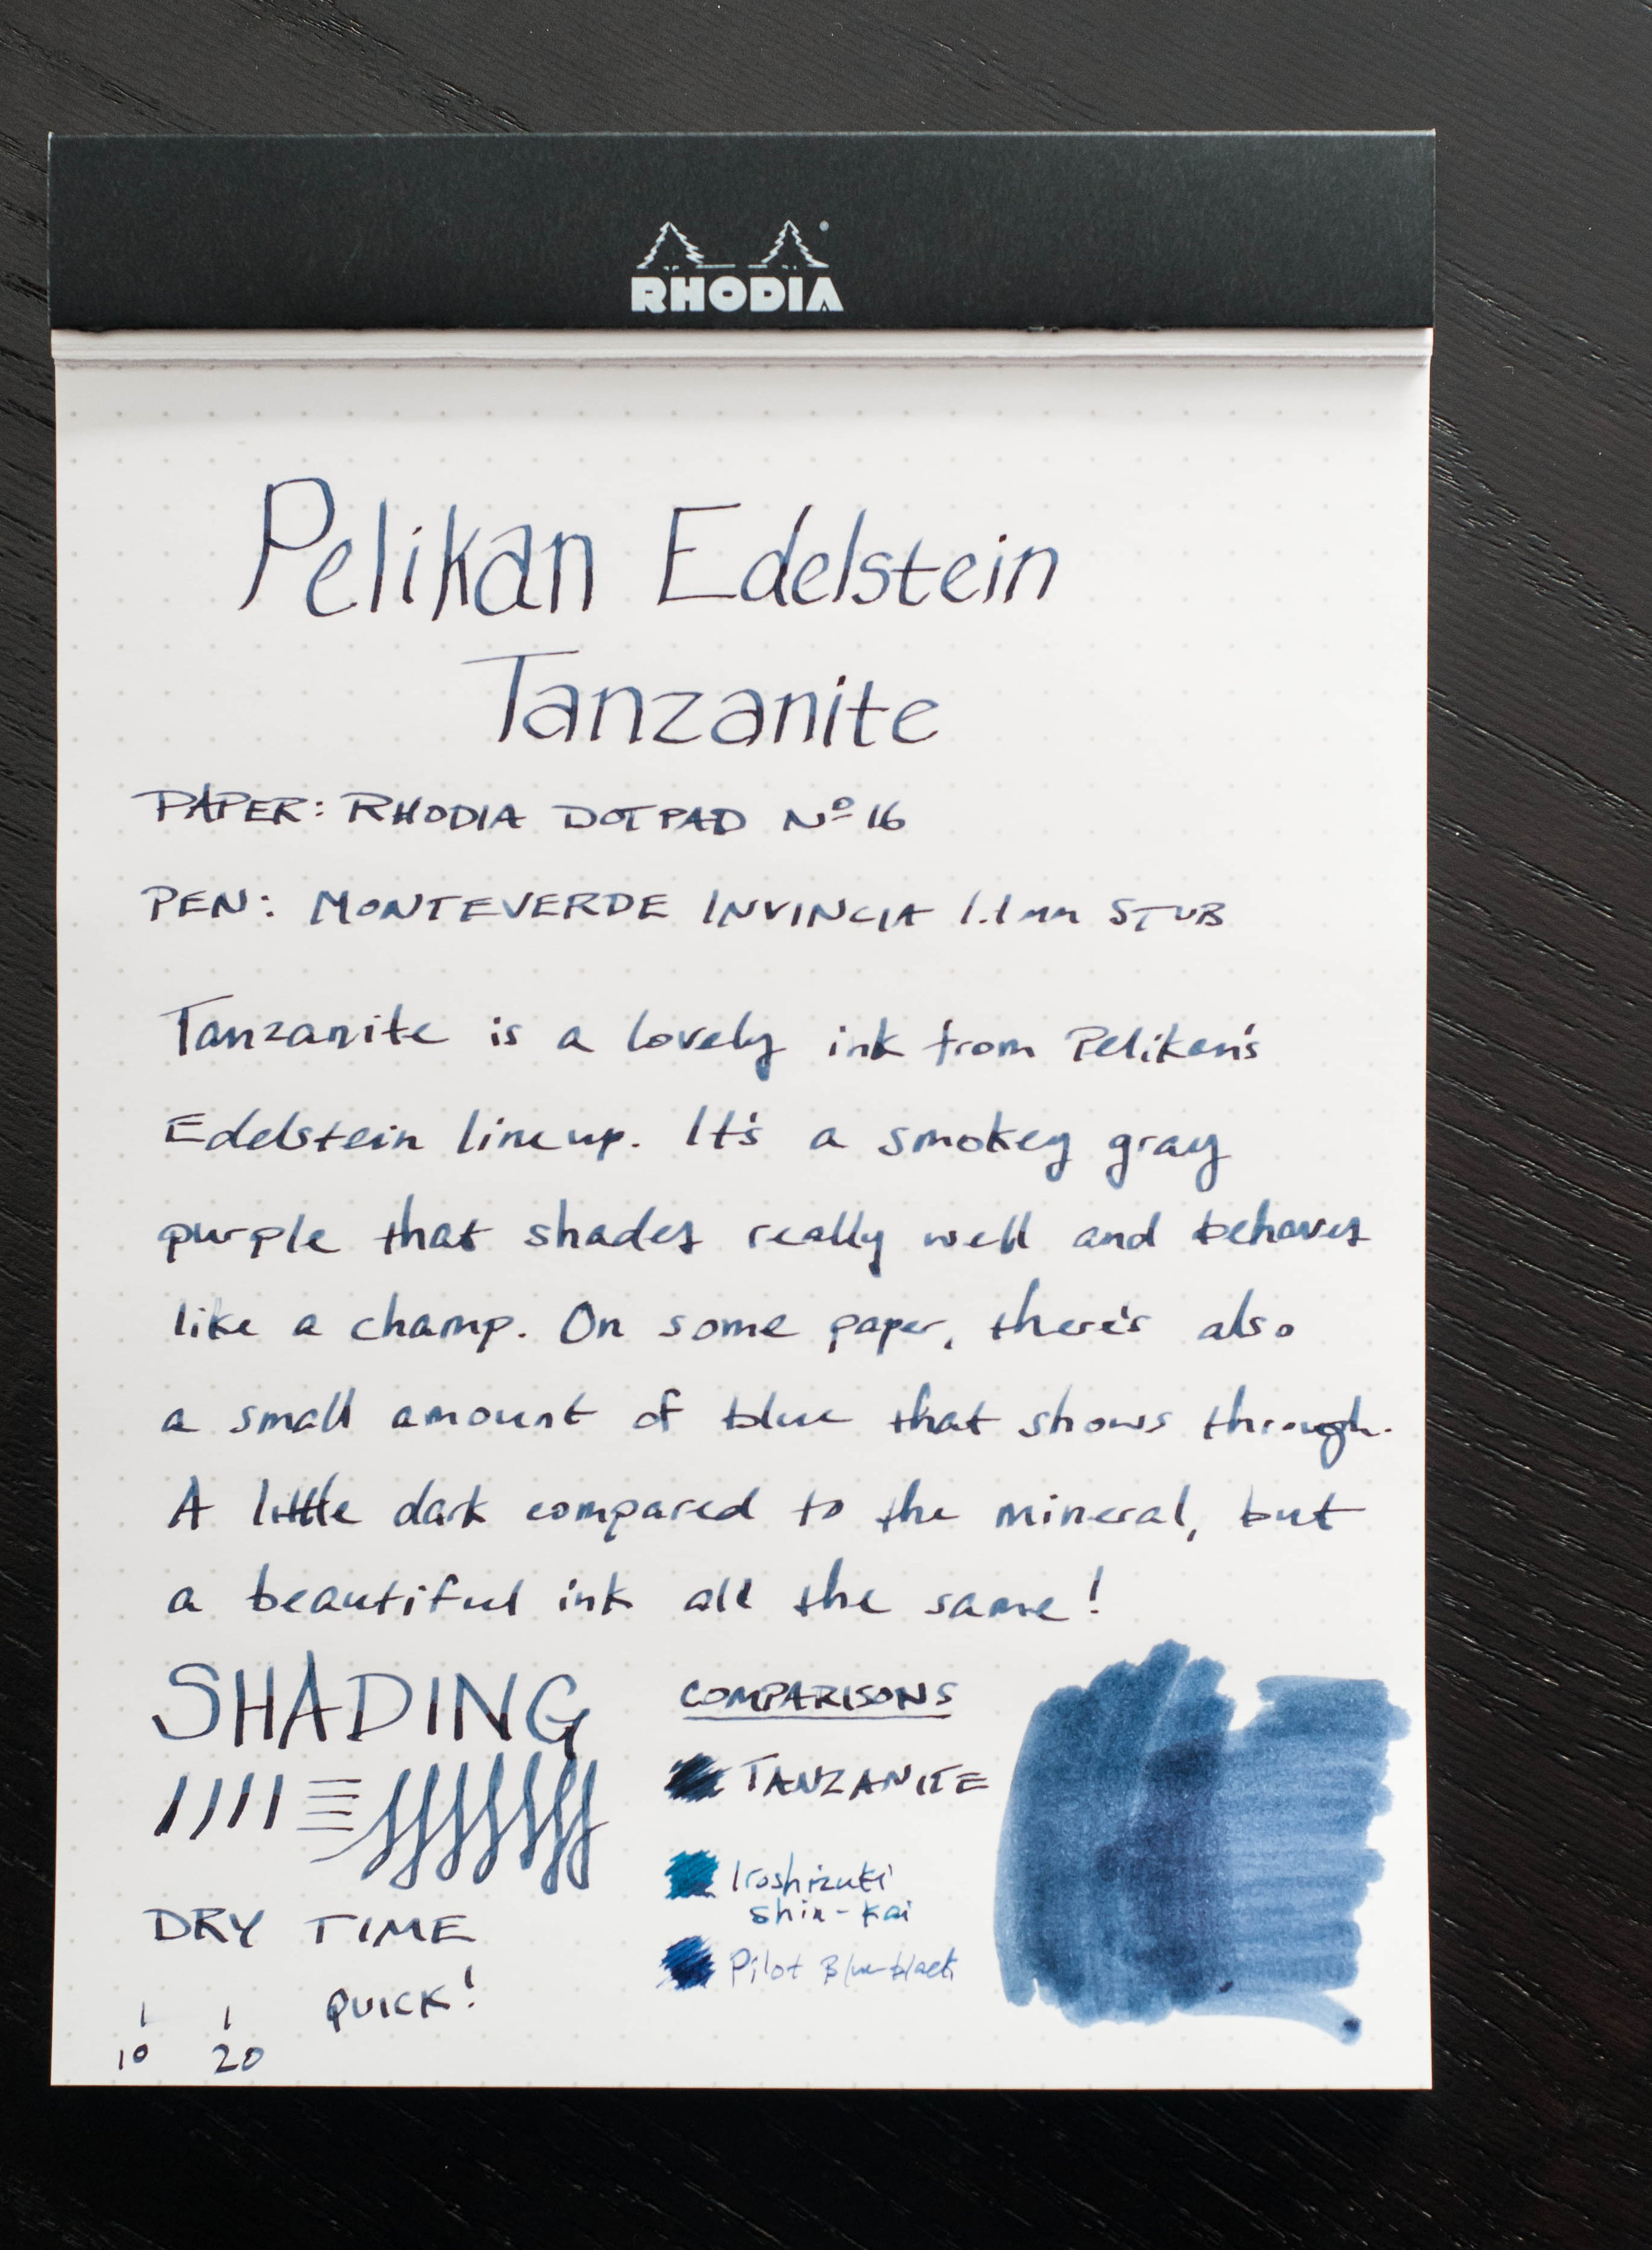 RHODIA
Pelikan Edelstein
Tanzanite
PAPER: RHODIA DOTPAD Nº 16
PEN: MONTEVERDE INVINCIA 1.1mm STUB
Tanzanite is a lovely ink from Pelikan's
Edelstein lineup. It's a smokey gray
purple that shades really well and behaves
like a champ. On some paper, there's also
a small amount of blue that shows through.
A little dark compared to the mineral, but
a beautiful ink all the same!
SHADING
COMPARISONS
TANZANITE
Iroshizuki
Shin-kai
Pilot Blue-black
DRY TIME
QUICK!
10 20